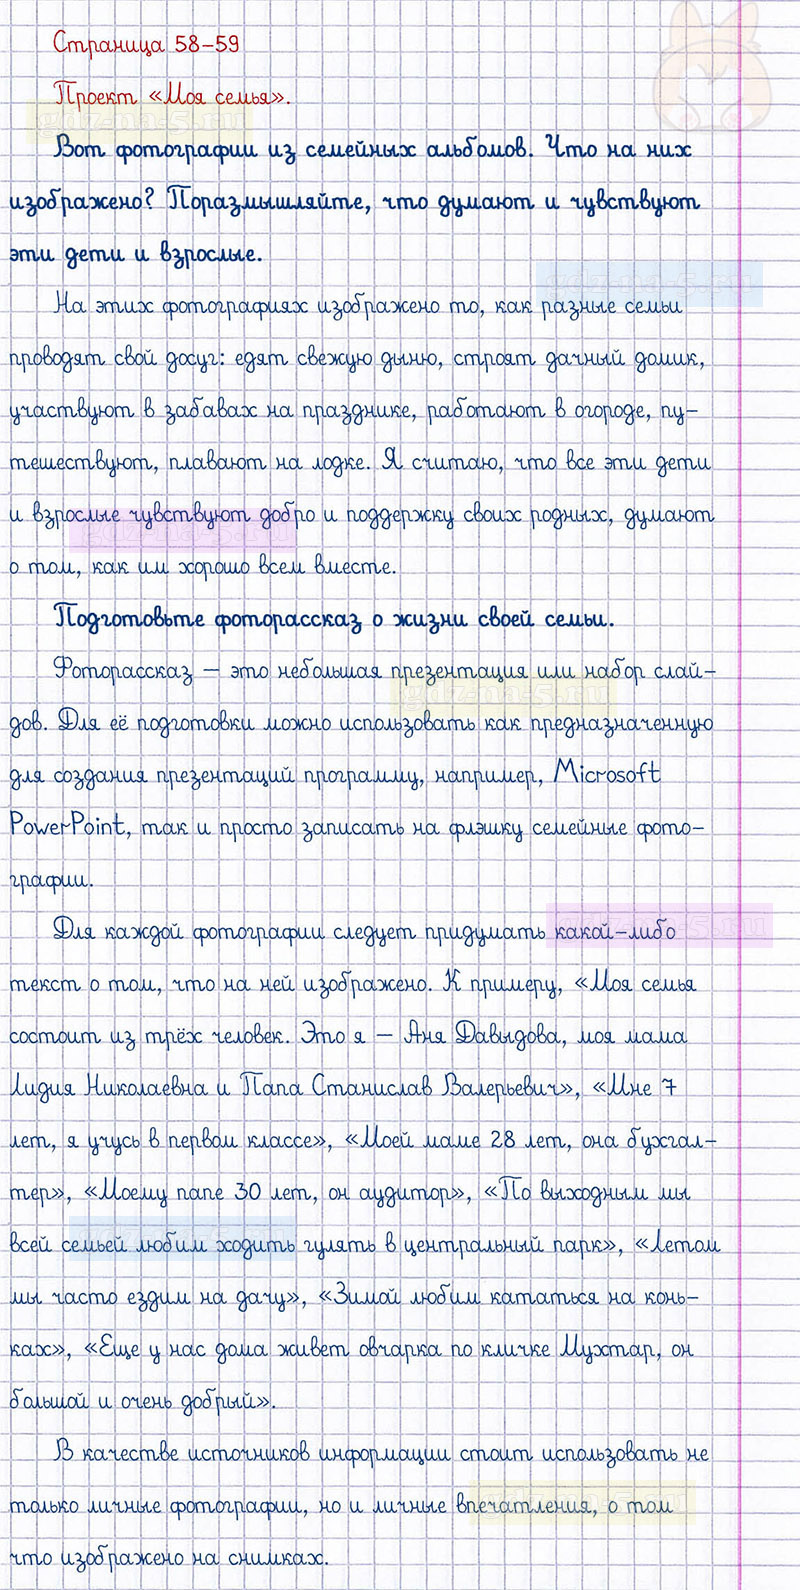 Страница 58-59
Проект «Моя семья».
gdz-na-5.ru
Вот фотографии из семейных альбомов. Что на них
изображено? Поразмышляйте, что думают и чувствуют
эти дети и взрослые.
gdz-na-5.ru
На этих фотографиях изображено то, как разные семьи
проводят свой досуг: едят свежую дыню, строят дачный домик,
участвуют в забавах на празднике, работают в огороде, пу-
тешествуют, плавают на лодке. Я считаю, что все эти дети
и взрослые чувствуют добро и поддержку своих родных, думают
gdz-na-5.ru
о том, как им хорошо всем вместе.
Подготовьте фоторассказ о жизни своей семьи.
Фоторассказ — это небольшая презентация или набор слай-
gdz-na-5.ru
дов. Для её подготовки можно использовать как предназначенную
для создания презентаций программу, например, Microsoft
PowerPoint, так и просто записать на флэшку семейные фото-
графии.
gdz-na-5.ru
Для каждой фотографии следует придумать какой-либо
текст о том, что на ней изображено. К примеру, «Моя семья
состоит из трёх человек. Это я — Аня Давыдова, моя мама
Лидия Николаевна и Папа Станислав Валерьевич», «Мне 7
лет, я учусь в первом классе», «Моей маме 28 лет, она бухгал-
тер», «Моему папе 30 лет, он аудитор», «По выходным мы
gdz-na-5.ru
всей семьей любим ходить гулять в центральный парк», «Летом
мы часто ездим на дачу», «Зимой любим кататься на конь-
ках», «Еще у нас дома живет овчарка по кличке Мухтар, он
большой и очень добрый».
В качестве источников информации стоит использовать не
gdz-na-5.ru
только личные фотографии, но и личные впечатления, о том
что изображено на снимках.